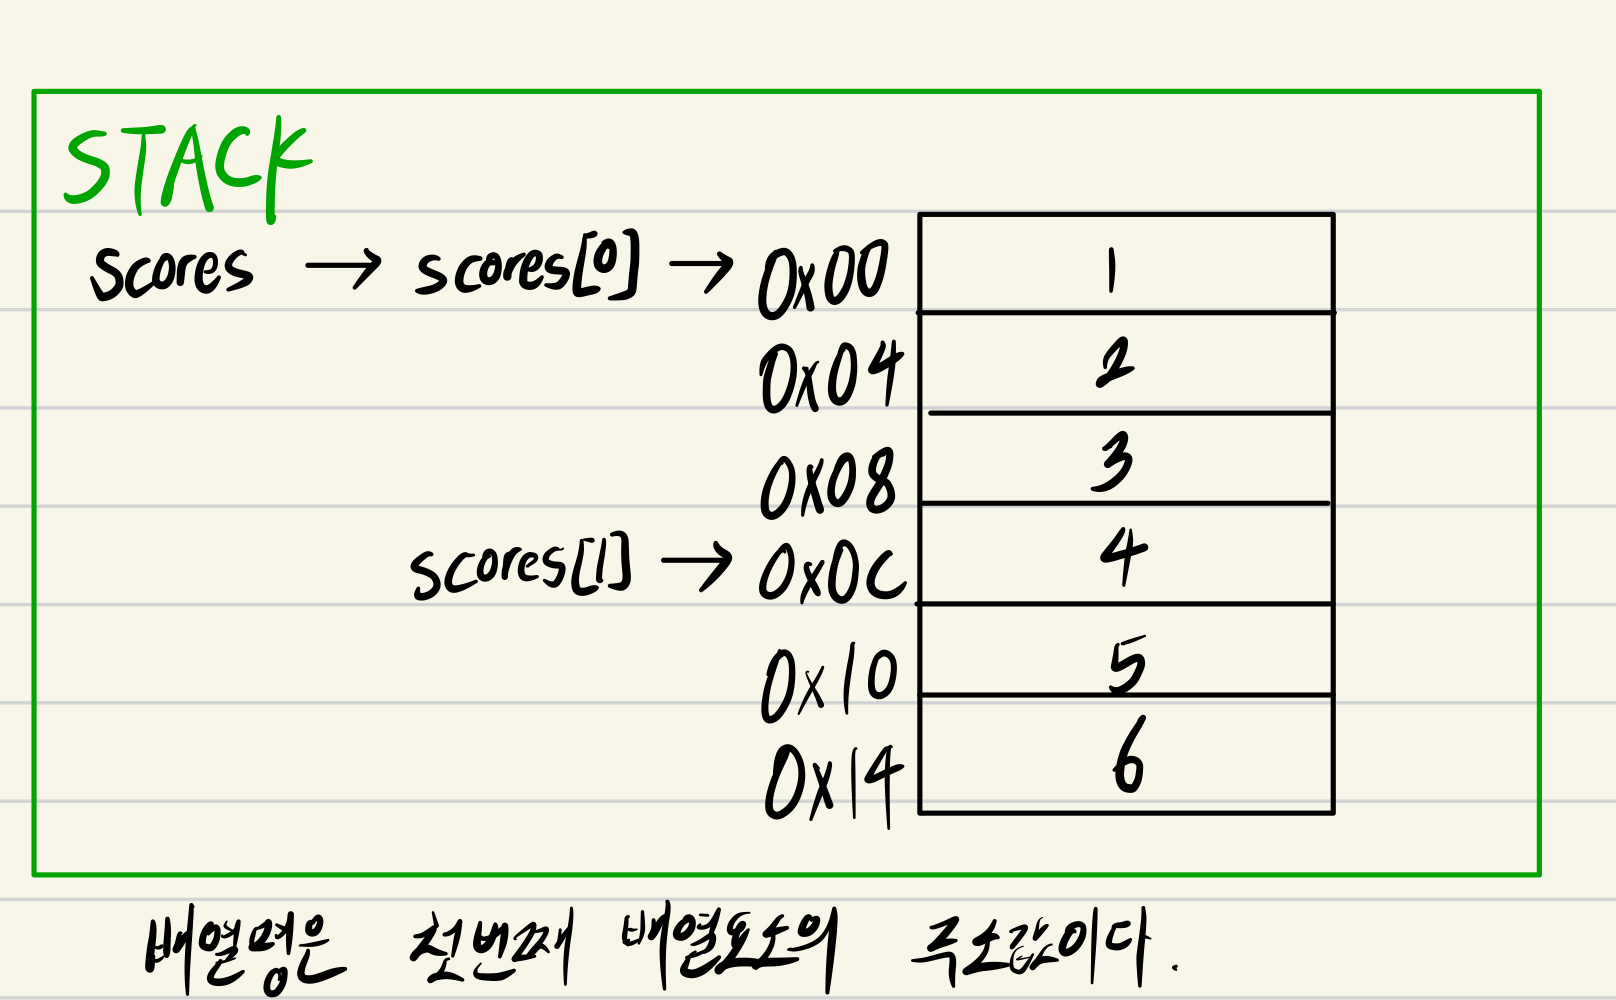 STACK
scores → scores[0] → 0x00 1
0x04 2
0x08 3
scores[1] → 0x0C 4
0x10 5
0x14 6
배열명은 첫번째 배열요소의 주소값이다.